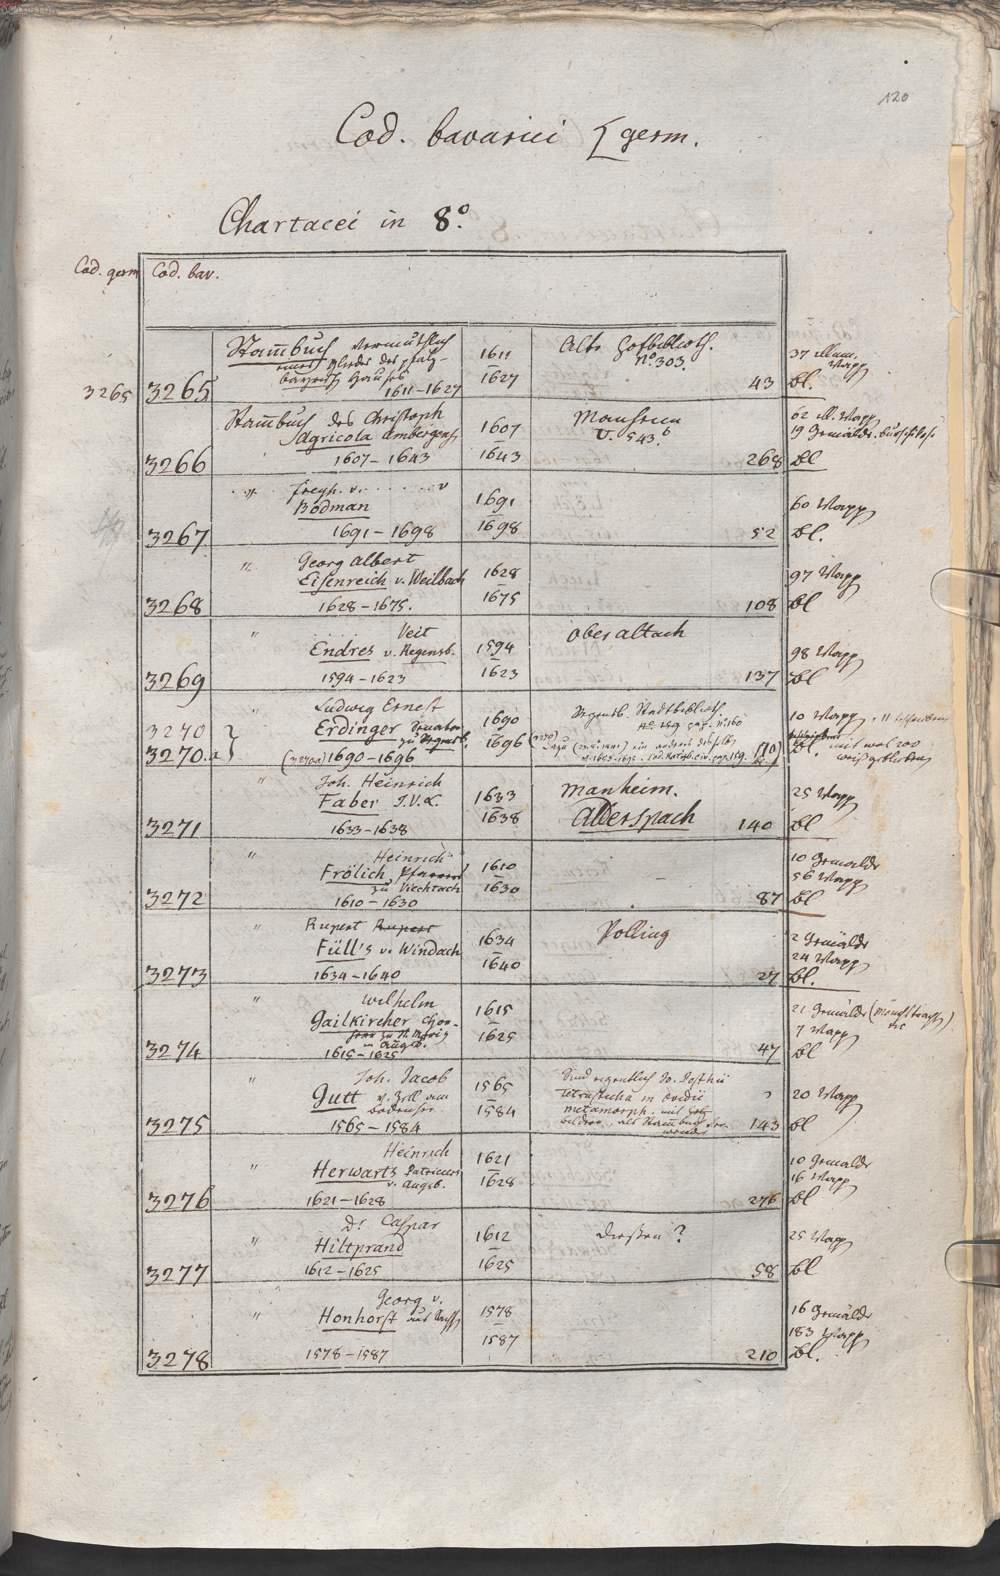 120
Cod. bavarici [germ.
Chartacei in 8.°
Cod. germ Cod. bav.
Stam̄buch vermuthlich
eines Gliedes des pfalz-
bayerisch Hauses
1611-1627
1611
—
1627
Alte Hofbiblioth.
N° 303.
37 illum.
Wapp
3265 3265 43 bl.
Stam̄buch des Christoph
Agricola Ambergens,
1607-1643
1607
—
1643
Manheim
V. 543.b
62 ill. Wapp
19 Gemälde
3266 268 bl
" Freyh. v. . . . . . . v
Bodman
1691-1698
1691
—
1698
60 Wapp
3267 52 bl.
" Georg Albert
Eisenreich v. Weilbach
1628-1675.
1628
—
1675
97 Wapp
3268 108 bl
" Veit
Endres v. Regensb.
1594-1623
1594
—
1623
Oberaltach
98 Wapp
3269 137 bl
" Ludwig Ernest
3270 Erdinger Senator
zu Regensb.
3270.a (3270a) 1690-1696
1690
—
1696
Regensb. Stadtbiblioth.
10 Wapp
170 bl. weiß geblieben
" Joh. Heinrich
Faber J.V.L.
1633-1638
1633
—
1638
Manheim.
Alderspach
25 Wapp
3271 140 bl
" Heinrich
Frölich Pfarrer
zu Viechtach
1610-1630
1610
—
1630
–
10 Gemälde
56 Wapp
3272 87 bl
" Rupert Rupert
Füll's v. Windach
1634-1640
1634
—
1640
Polling
2 Gemälde
24 Wapp
3273 27 bl.
" Wilhelm
Gailkircher Chor-
herr zu St. Moriz
in Augsb.
1615-1625
1615
—
1625
21 Gemälde
7 Wapp
3274 47 bl
" Joh. Jacob
Gutt v. Zell am
Bodensee
1565-1584
1565
—
1584
Sind eigentlich Jo. Posthii
Tetrasticha in Ovidii
metamorph. mit Holz-
20 Wapp
3275 143 bl
" Heinrich
Herwarts Patricius
v. Augsb.
1621-1628
1621
—
1628
10 Gemälde
16 Wapp
3276 276 bl
" Dr. Caspar
Hiltprand
1612-1625
1612
—
1625
Dießen?
25 Wapp
3277 58 bl
" Georg v.
Honhorst aus Sachs
1578-1587
1578
—
1587
16 Gemälde
183 Wapp
3278 210 bl.